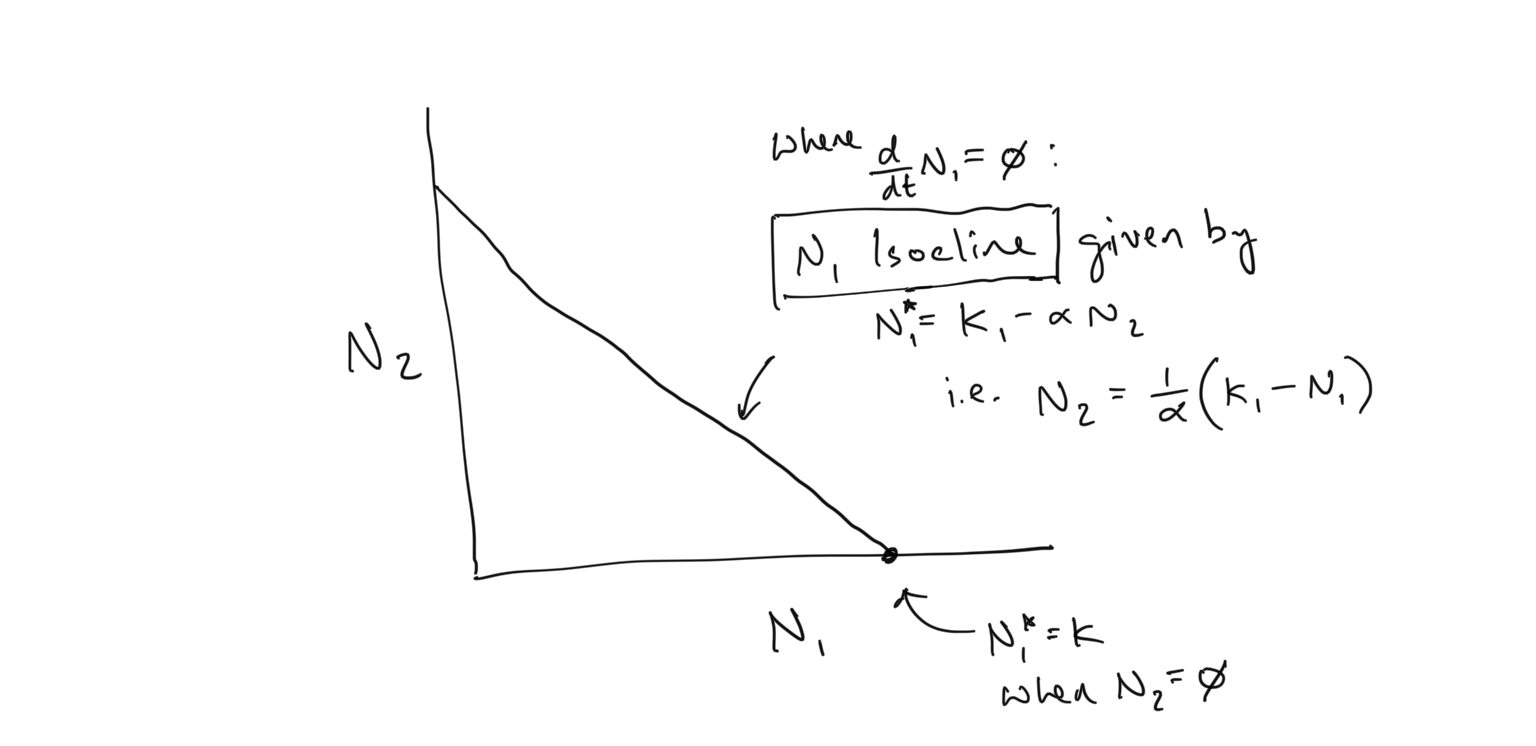 where d/dt N₁ = ∅ :
N₁ Isocline given by
N₁* = K₁ - α N₂
i.e. N₂ = 1/α (K₁ - N₁)
N₂
N₁
N₁* = K
when N₂ = ∅